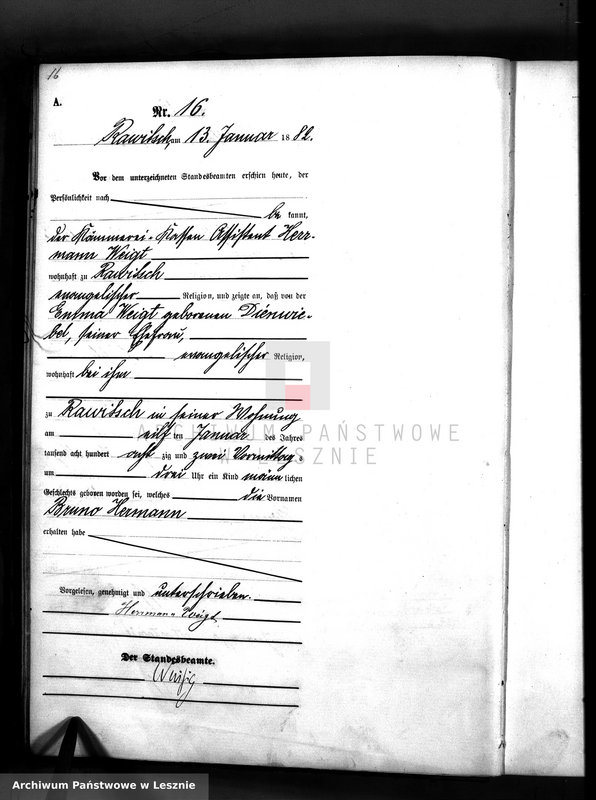 16
A.
Nr. 16.
Rawitsch, am 13. Januar 1882.
Vor dem unterzeichneten Standesbeamten erschien heute, der
Persönlichkeit nach
be kannt,
der Kämmerei-Kassen Assistent Herr-
mann Weigt
wohnhaft zu Rawitsch
evangelischer Religion, und zeigte an, daß von der
Emma Weigt geborenen Dienwie-
bel, seiner Ehefrau,
evangelischer Religion,
wohnhaft bei ihm
zu Rawitsch in seiner Wohnung
am eilf ten Januar des Jahres
tausend acht hundert acht zig und zwei Vormittags
um drei Uhr ein Kind männ lichen
Geschlechts geboren worden sei, welches die Vornamen
Bruno Hermann
erhalten habe
Vorgelesen, genehmigt und unterschrieben.
Herrmann Weigt
Der Standesbeamte.
ARCHIWUM PAŃSTWOWE
W LESZNIE
Archiwum Państwowe w Lesznie